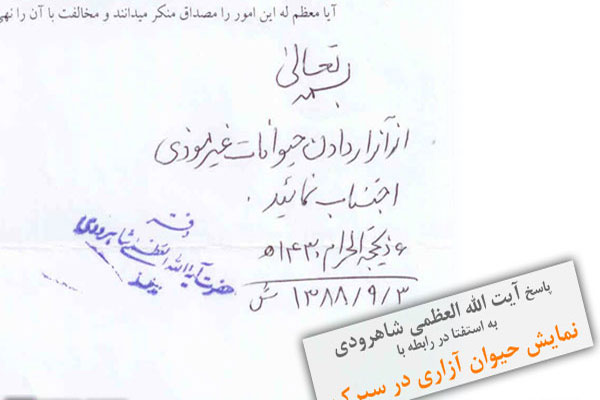 آیا معظم له این امور را مصداق منکر میدانند و مخالفت با آن را نهی
بسمه تعالی
از آزار دادن حیوانات غیر موذی
اجتناب نمائید.
۶ ذیحجة الحرام ۱۴۳۰ ه
۱۳۸۸/۹/۳ ش
دفتر
حضرت آیة الله العظمی شاهرودی
پاسخ آیت الله العظمی شاهرودی
به استفتا در رابطه با
نمایش حیوان آزاری در سیرک